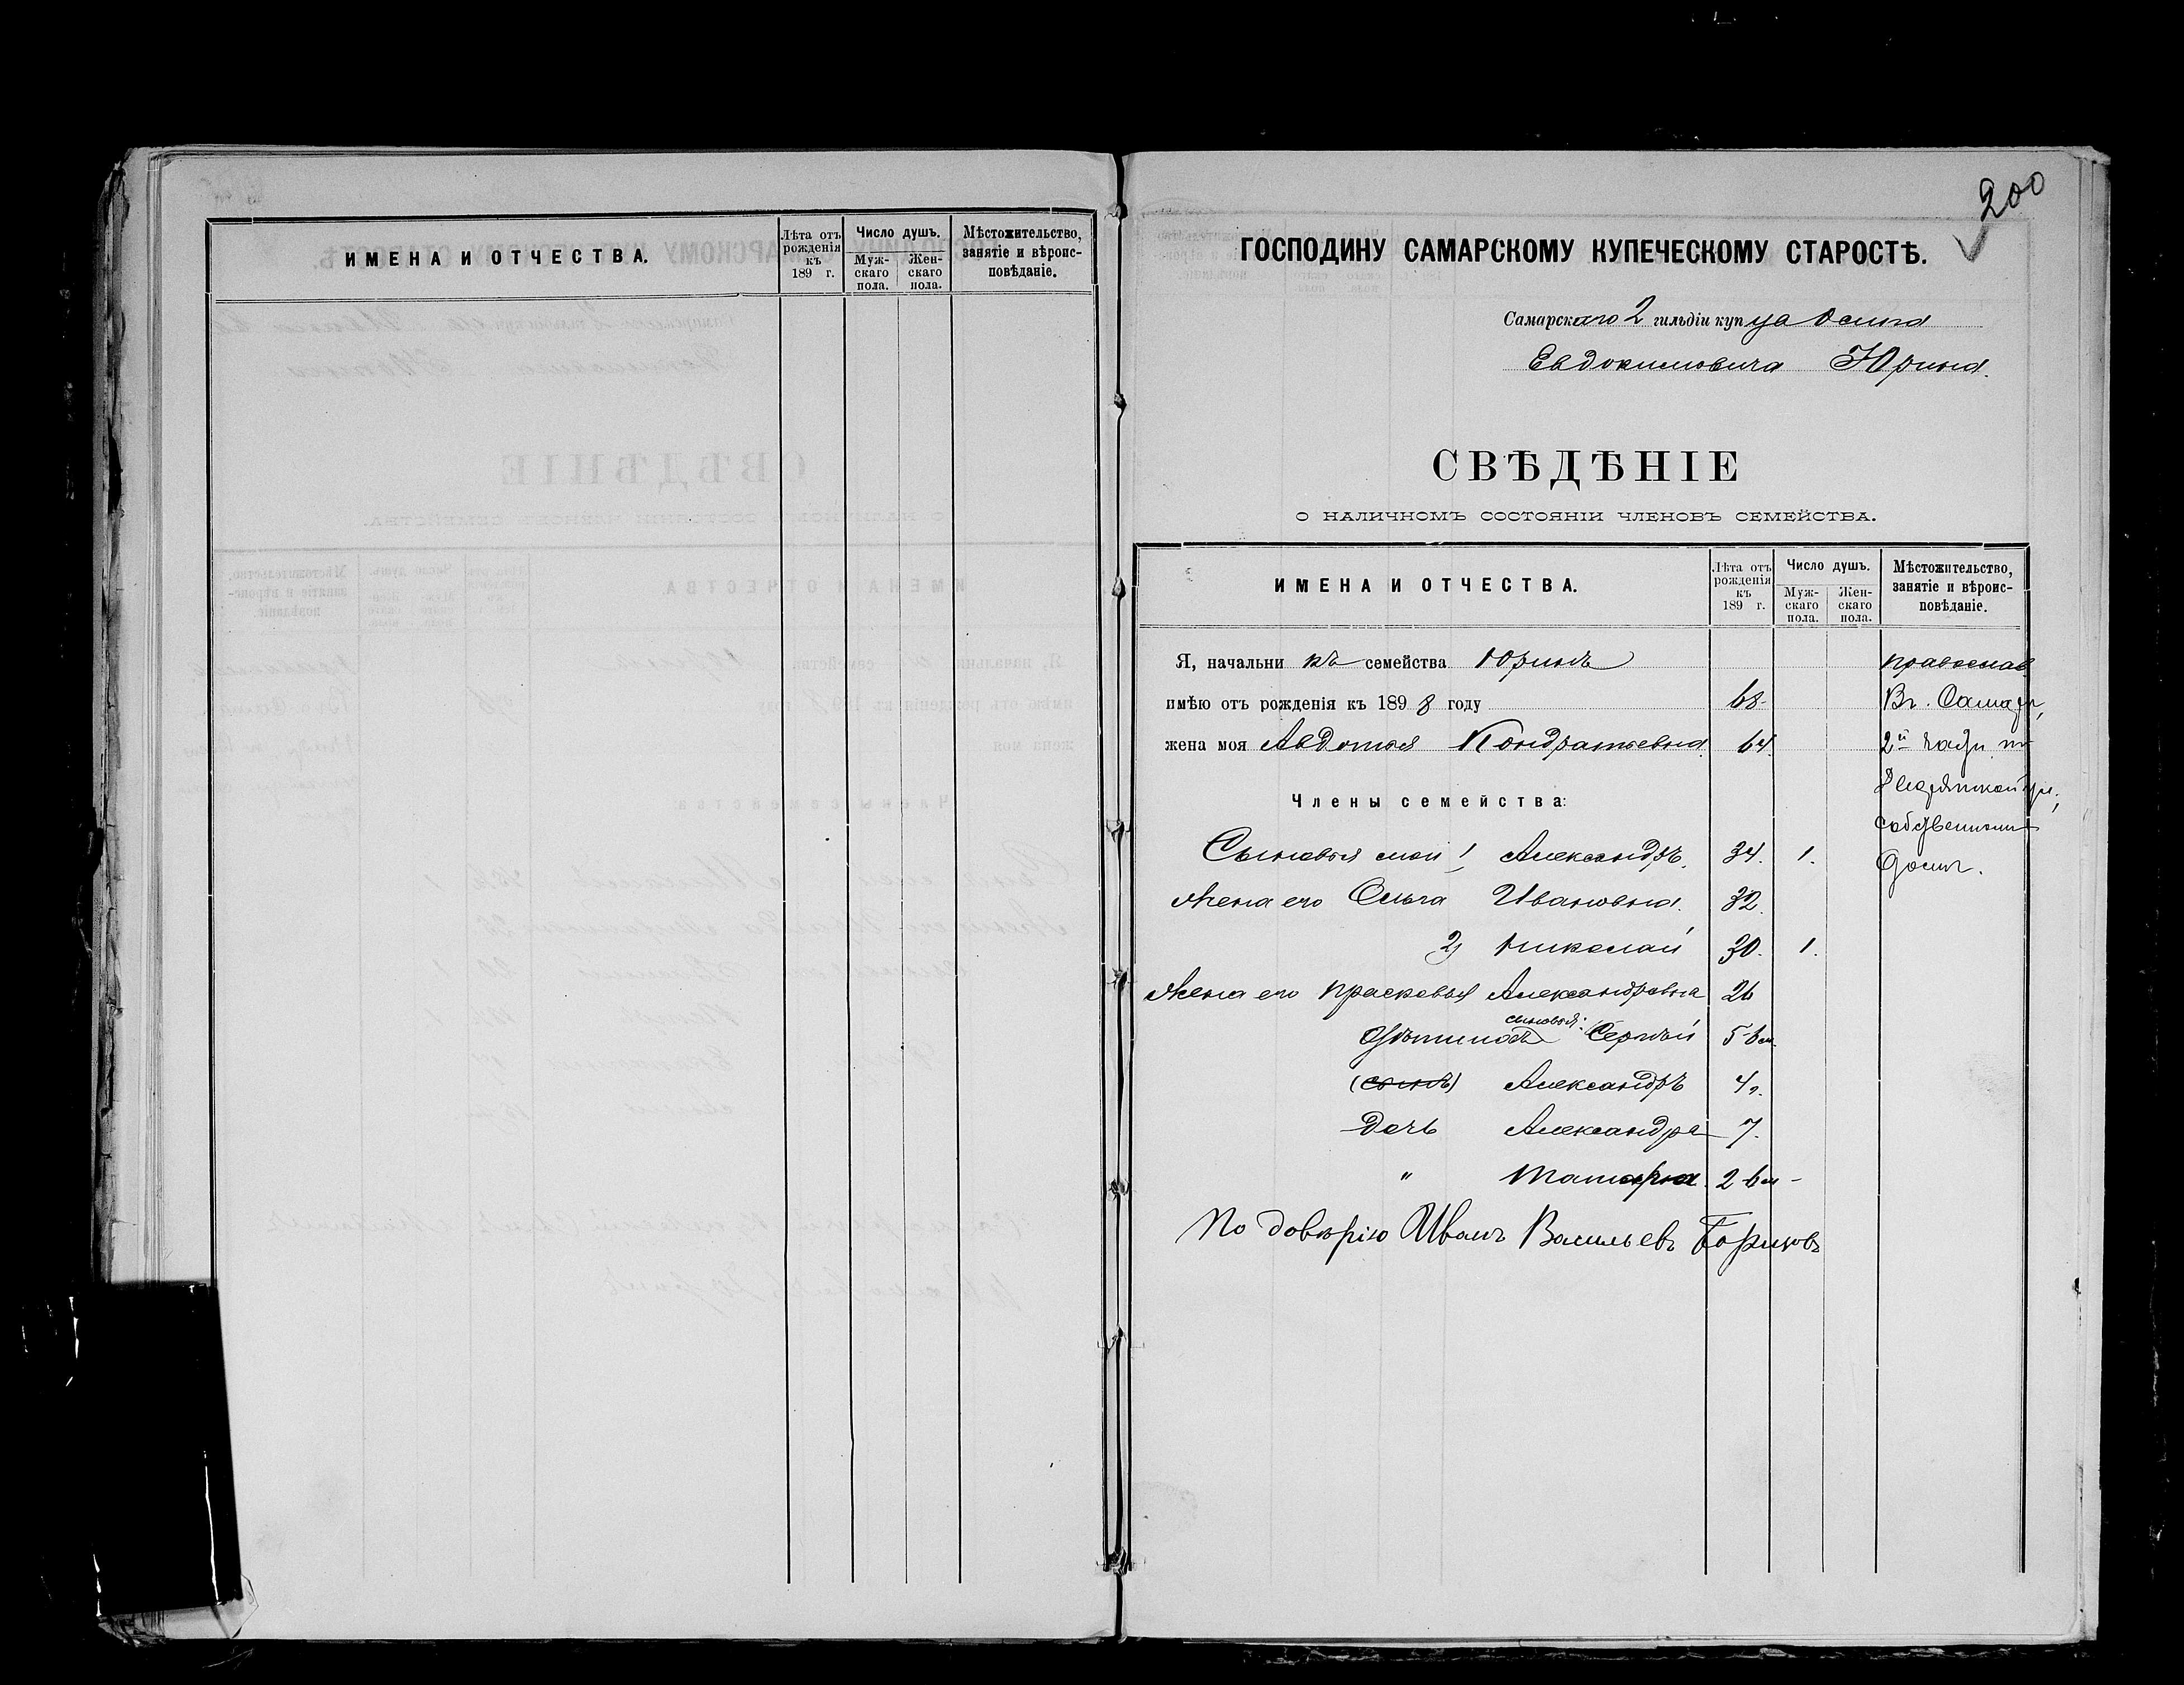 ИМЕНА И ОТЧЕСТВА.
Лѣта отъ рожденія къ 189 г.
Число душъ.
Мужскаго пола.
Женскаго пола.
Мѣстожительство, занятіе и вѣроисповѣданіе.
200
ГОСПОДИНУ САМАРСКОМУ КУПЕЧЕСКОМУ СТАРОСТѢ.
Самарскаго 2 гильдіи купца Осипа
Евдокимовича Юрина.
СВѢДѢНІЕ
О НАЛИЧНОМЪ СОСТОЯНІИ ЧЛЕНОВЪ СЕМЕЙСТВА.
ИМЕНА И ОТЧЕСТВА.
Лѣта отъ рожденія къ 189 г.
Число душъ.
Мужскаго пола.
Женскаго пола.
Мѣстожительство, занятіе и вѣроисповѣданіе.
Я, начальникъ семейства Юринъ православ
имѣю отъ рожденія къ 1898 году 68 Въ Самарѣ,
жена моя Авдотья Кондратьевна 64 2й части по
Члены семейства:
собственный
домъ.
Сыновья мои 1, Александръ. 34. 1.
Жена его Ольга Ивановна. 32.
2, Николай 30. 1.
Жена его Прасковья Александровна 26
сыновья: Сергѣй 5-6м.
(сынъ) Александръ 4г.
Дочь Александра 7.
" 2-6м-
По довѣрію Иванъ Васильевъ